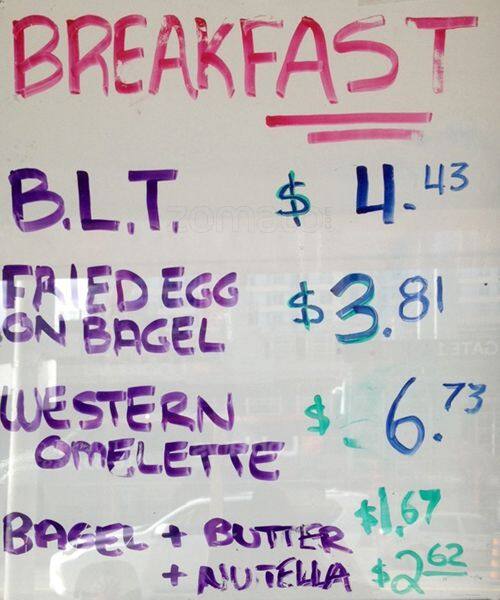 BREAKFAST
B.L.T. $ 4.43
zomato
FRIED EGG
ON BAGEL $3.81
WESTERN
OMELETTE $ 6.73
BAGEL + BUTTER $1.67
+ NUTELLA $2.62